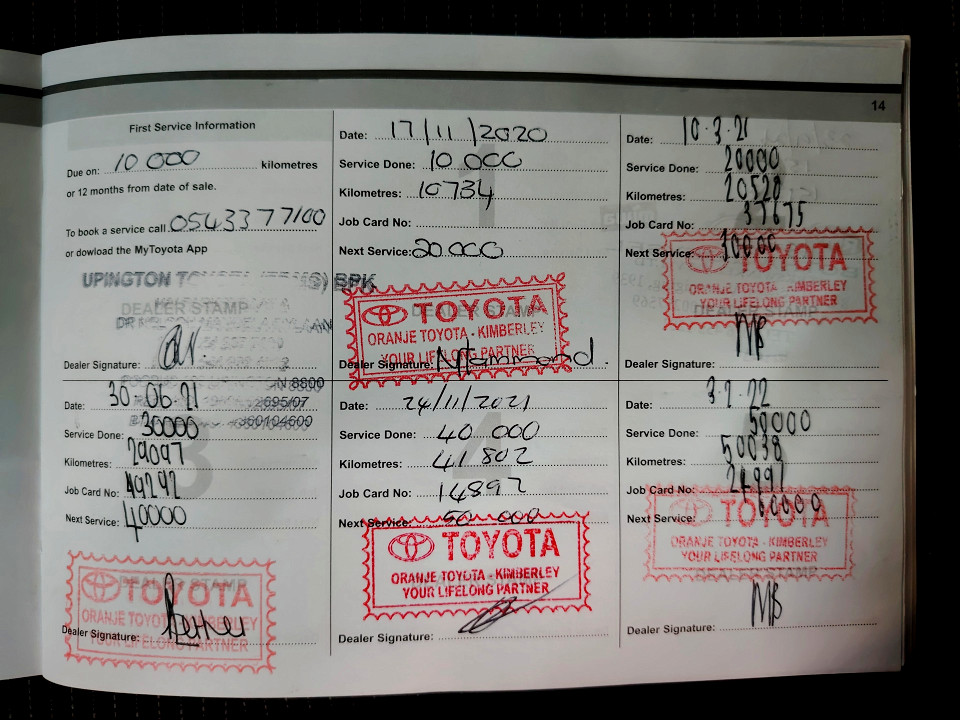 14
First Service Information
Due on: 10 000 kilometres
or 12 months from date of sale.
To book a service call 0543377100
or dowload the MyToyota App
UPINGTON BPK
DEALER STAMP
Dealer Signature:
Date: 17/11/2020
Service Done: 10 000
Kilometres: 10734
Job Card No:
Next Service: 20 000
TOYOTA
ORANJE TOYOTA - KIMBERLEY
YOUR LIFELONG PARTNER
Dealer Signature:
Date: 10.3.21
Service Done: 20000
Kilometres: 20520
Job Card No: 37675
Next Service: 30000
TOYOTA
ORANJE TOYOTA - KIMBERLEY
YOUR LIFELONG PARTNER
DEALER STAMP
MB
Dealer Signature:
8800
2695/07
Date: 30.06.21
Service Done: 30000
Kilometres: 29097
Job Card No: 49292
Next Service: 40000
DEALER STAMP
TOYOTA
ORANJE TOYOTA - KIMBERLEY
YOUR LIFELONG PARTNER
Dealer Signature:
Date: 24/11/2021
Service Done: 40 000
Kilometres: 41 802
Job Card No: 14897
Next Service: 50 000
TOYOTA
ORANJE TOYOTA - KIMBERLEY
YOUR LIFELONG PARTNER
Dealer Signature:
Date: 3.2.22
Service Done: 50000
Kilometres: 50038
Job Card No: 24991
Next Service: 60000
TOYOTA
ORANJE TOYOTA - KIMBERLEY
YOUR LIFELONG PARTNER
DEALER STAMP
MB
Dealer Signature: